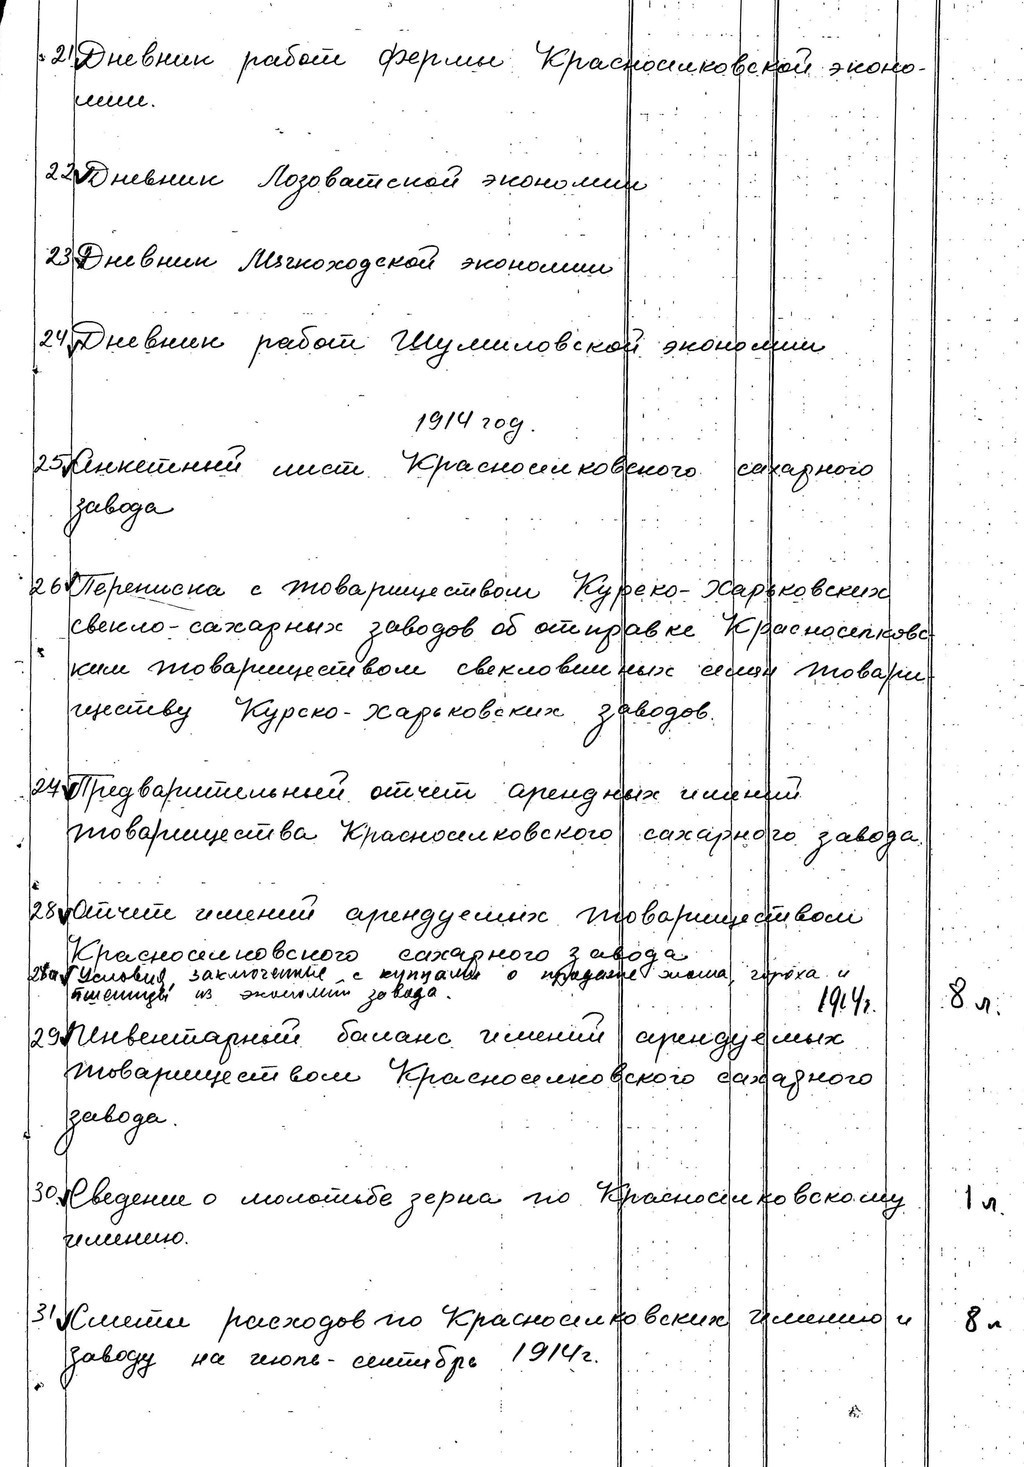 21 Дневник работ фермы Красноселковской эконо-
мии.
22 Дневник Лозоватской экономии
23 Дневник Мягкоходской экономии
24 Дневник работ Шумиловской экономии
1914 год.
25 Анкетный лист Красноселковского сахарного
завода
26 Переписка с товариществом Курско-Харьковских
свекло-сахарных заводов об отправке Красноселковс-
ким товариществом свекловичных семян товари-
ществу Курско-Харьковских заводов.
27 Предварительный отчет арендных имений
товарищества Красноселковского сахарного завода.
28 Отчет имений арендуемых товариществом
Красноселковского сахарного завода
28а Условия, заключенные с купцами о продаже жита, гороха и
пшеницы из экономий завода. 1914г. 8 л.
29 Инвентарный баланс имений арендуемых
товариществом Красноселковского сахарного
завода.
30. Сведение о молотьбе зерна по Красноселковскому 1 л.
имению.
31 Сметы расходов по Красноселковских имению и 8 л
заводу на июль-сентябрь 1914г.